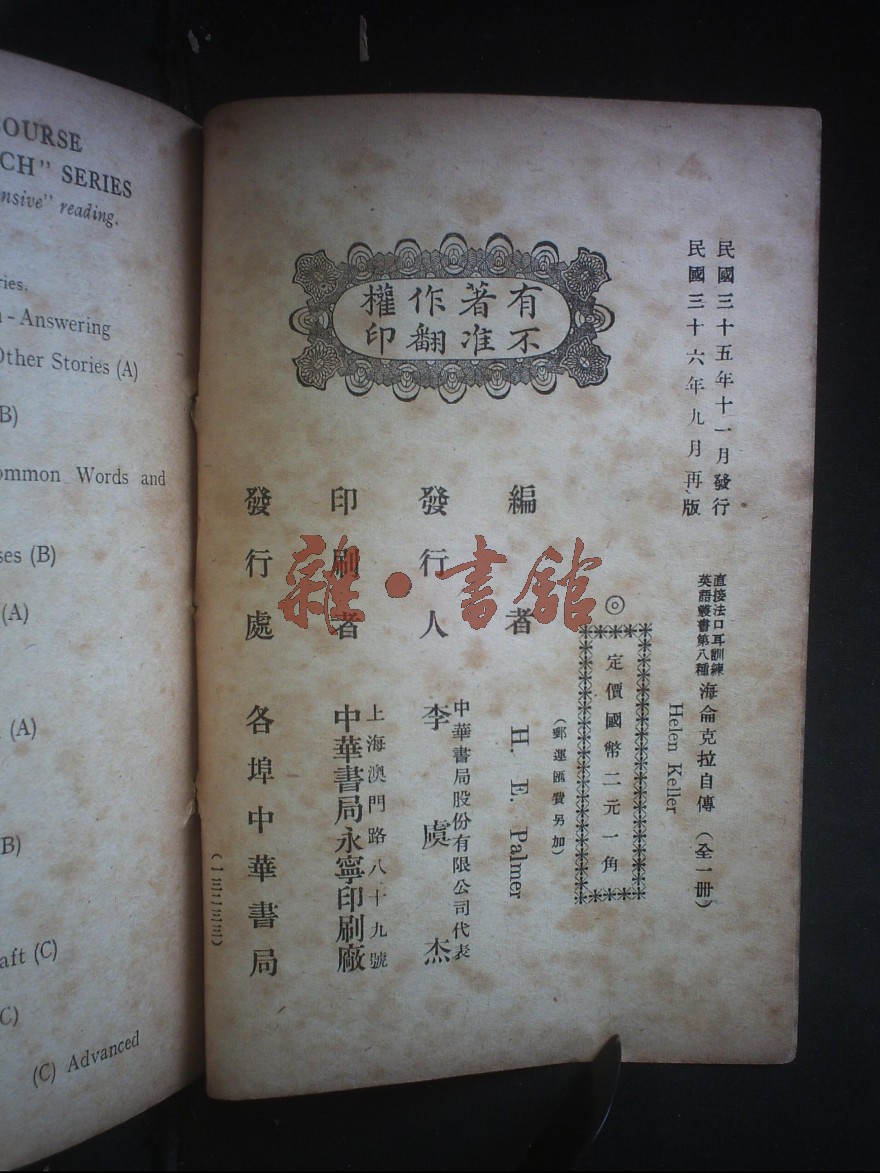 OURSE
CH” SERIES
ensive” reading.
ries.
- Answering
Other Stories (A)
B)
ommon Words and
ses (B)
(A)
(A)
B)
aft (C)
C)
(C) Advanced
有著作權
不准翻印
民國三十五年十一月發行
民國三十六年九月再版
直接法口耳訓練
英語叢書第八種
海侖克拉自傳(全一册)
Helen Keller
◎
定價國幣二元一角
(郵運匯費另加)
編者 H. E. Palmer
中華書局股份有限公司代表
發行人 李虞杰
上海澳門路八十九號
印刷者 中華書局永寧印刷廠
發行處 各埠中華書局
(一三二三三)
雜·書館